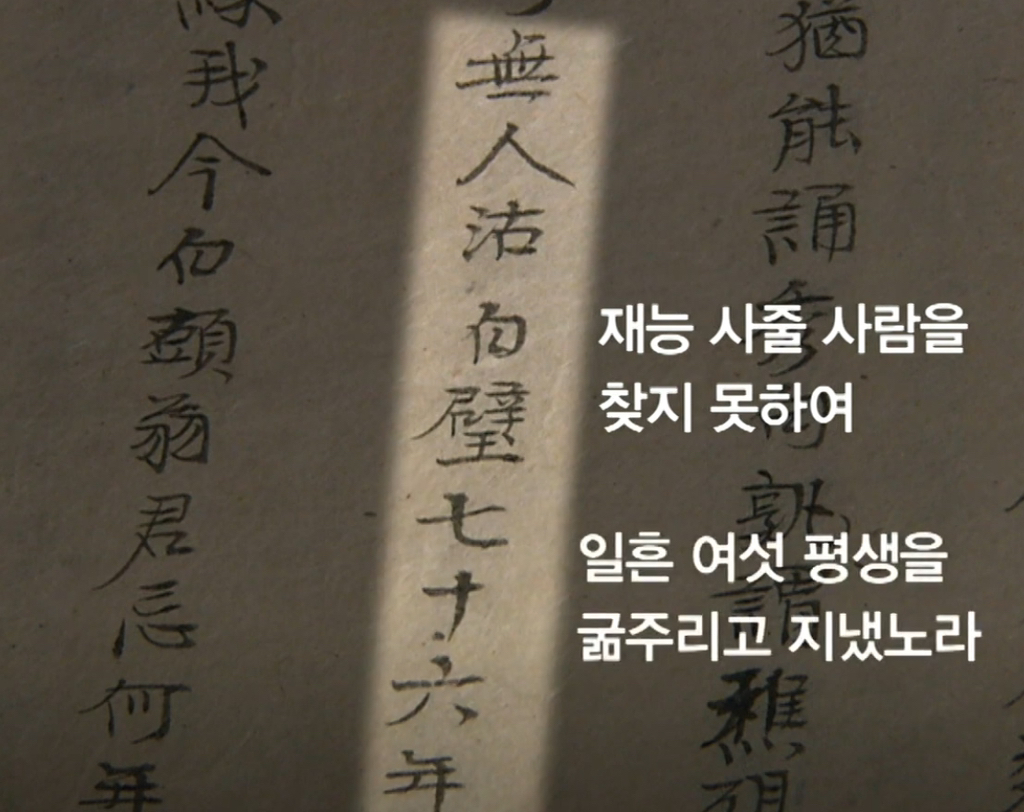 猶能誦孰謂樵
無人沽白璧七十六年
我今白頭翁君忌何年
재능 사줄 사람을
찾지 못하여
일흔 여섯 평생을
굶주리고 지냈노라